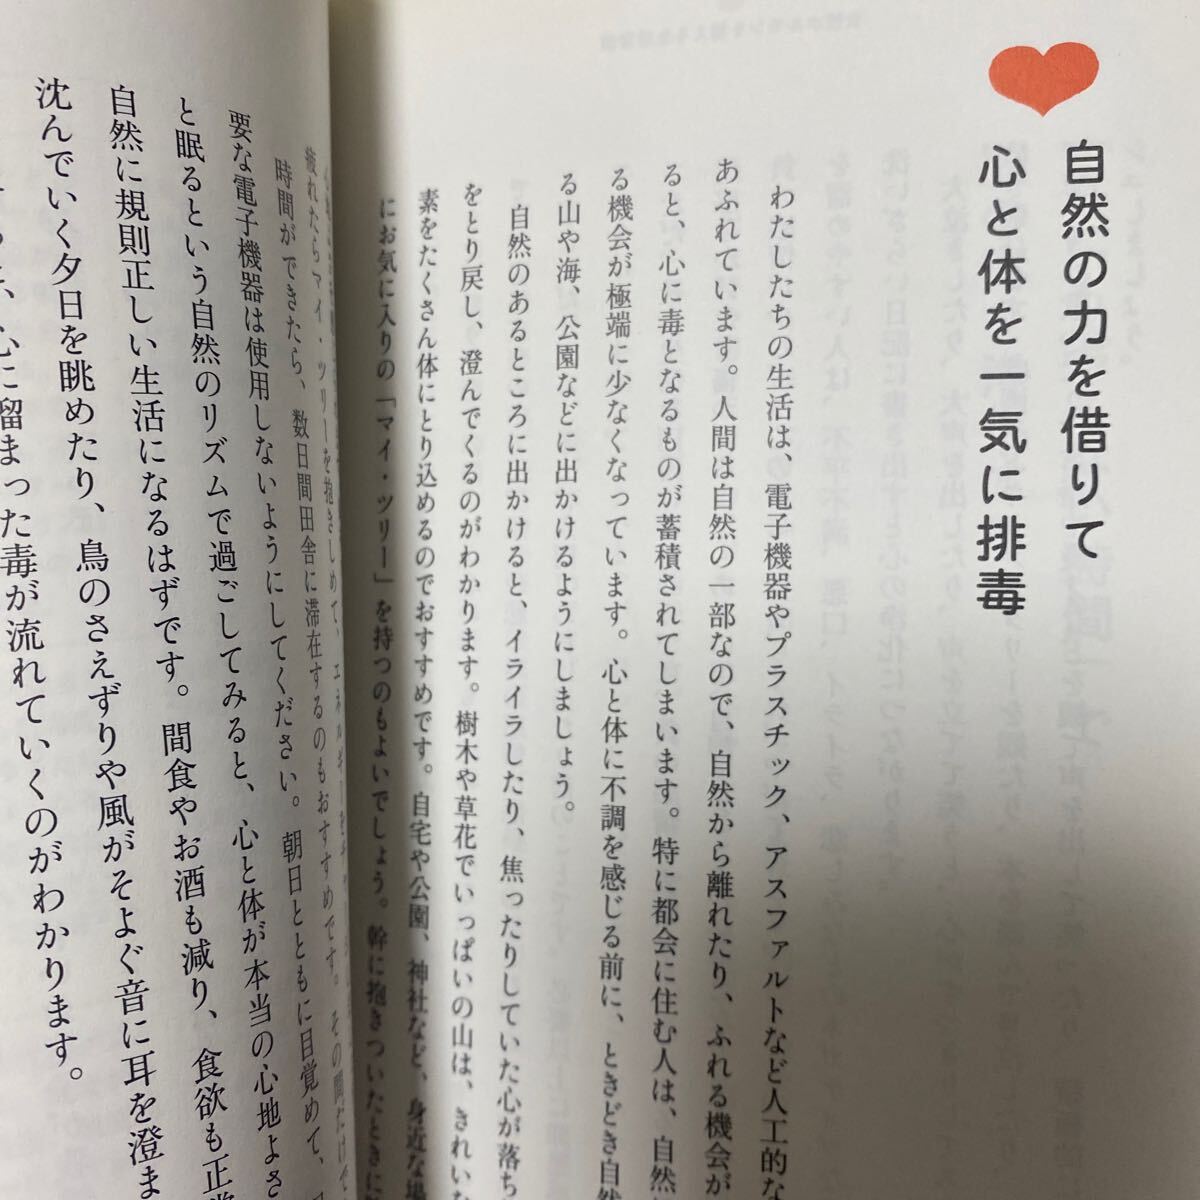 自然の力を借りて
心と体を一気に排毒
わたしたちの生活は、電子機器やプラスチック、アスファルトなど人工的な
あふれています。人間は自然の一部なので、自然から離れたり、ふれる機会が
ると、心に毒となるものが蓄積されてしまいます。特に都会に住む人は、自然
る機会が極端に少なくなっています。心と体に不調を感じる前に、ときどき自然
る山や海、公園などに出かけるようにしましょう。
自然のあるところに出かけると、イライラしたり、焦ったりしていた心が落ち
をとり戻し、澄んでくるのがわかります。樹木や草花でいっぱいの山は、きれいな
素をたくさん体にとり込めるのでおすすめです。自宅や公園、神社など、身近な場
にお気に入りの「マイ・ツリー」を持つのもよいでしょう。幹に抱きついたときに
疲れたらマイ・ツリーを抱きしめて、エネルギーを
時間ができたら、数日間田舎に滞在するのもおすすめです。その間だけで
要な電子機器は使用しないようにしてください。朝日とともに目覚めて、
と眠るという自然のリズムで過ごしてみると、心と体が本当の心地よさ
自然に規則正しい生活になるはずです。間食やお酒も減り、食欲も正常
沈んでいく夕日を眺めたり、鳥のさえずりや風がそよぐ音に耳を澄ま
心に溜まった毒が流れていくのがわかります。